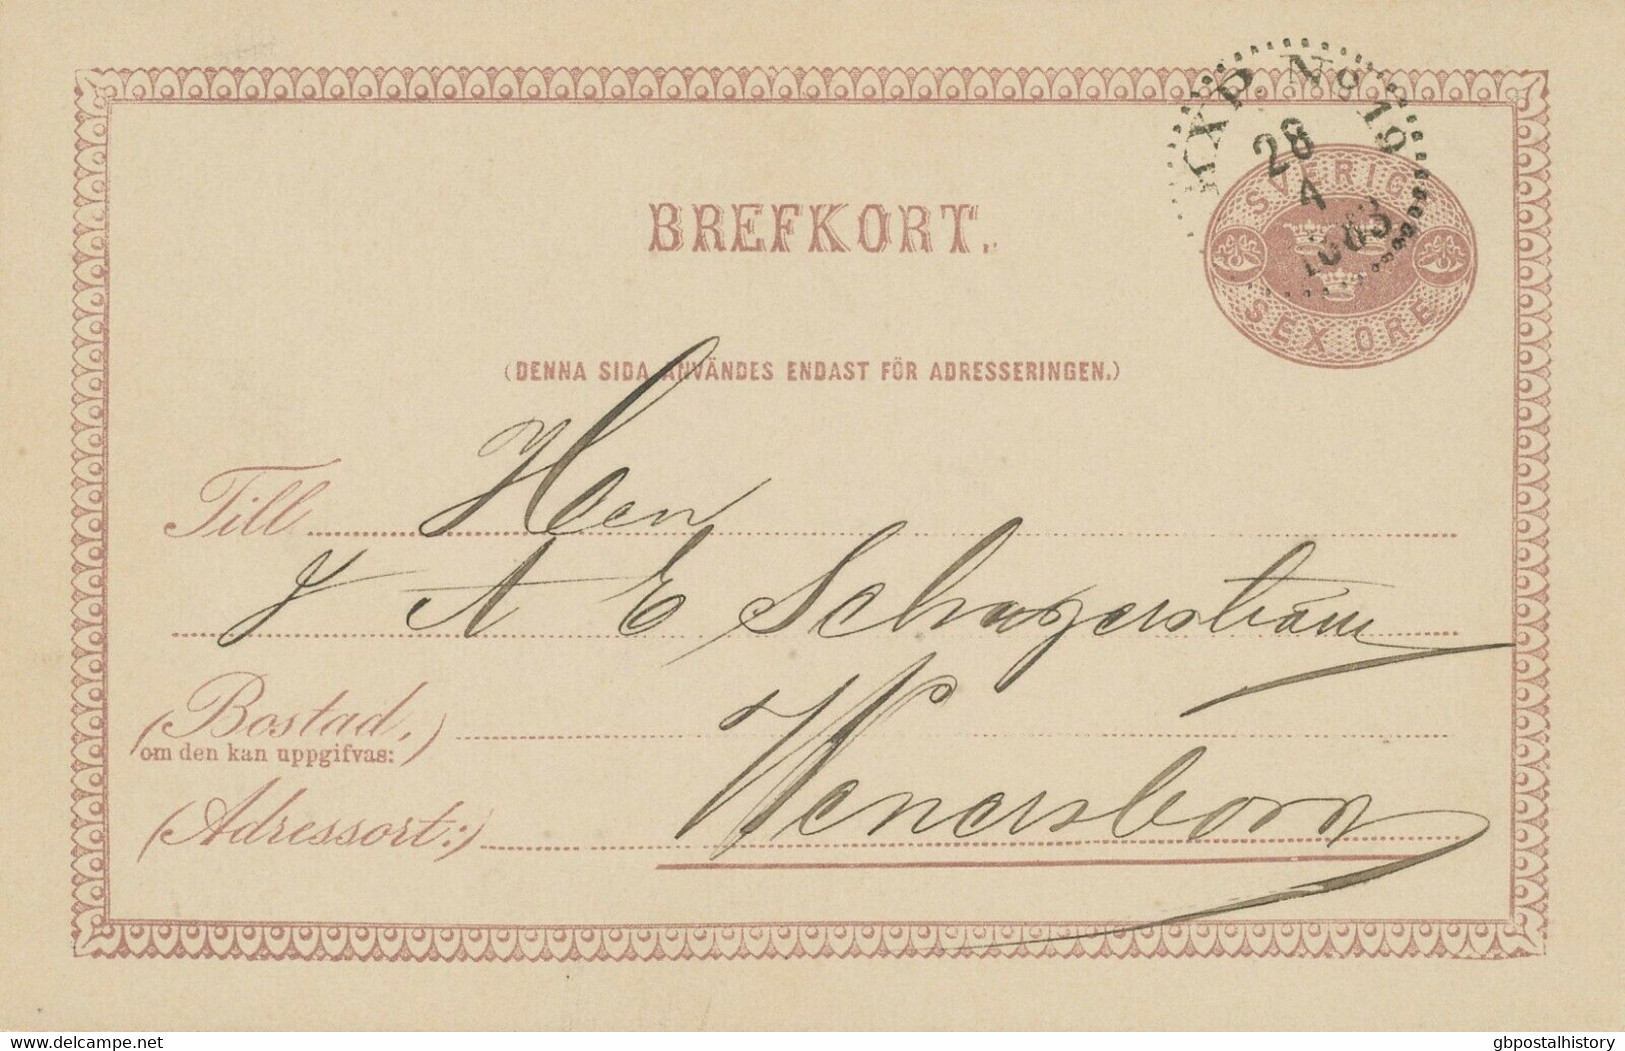 PKXP. No 19
28
4
1883
SVERIGE
SEX ÖRE
BREFKORT.
(DENNA SIDA ANVÄNDES ENDAST FÖR ADRESSERINGEN.)
Till Herr
J A E Schagerström
(Bostad,
om den kan uppgifvas:)
(Adressort:) Wenersborg
Delcampe.net
gbpostalhistory